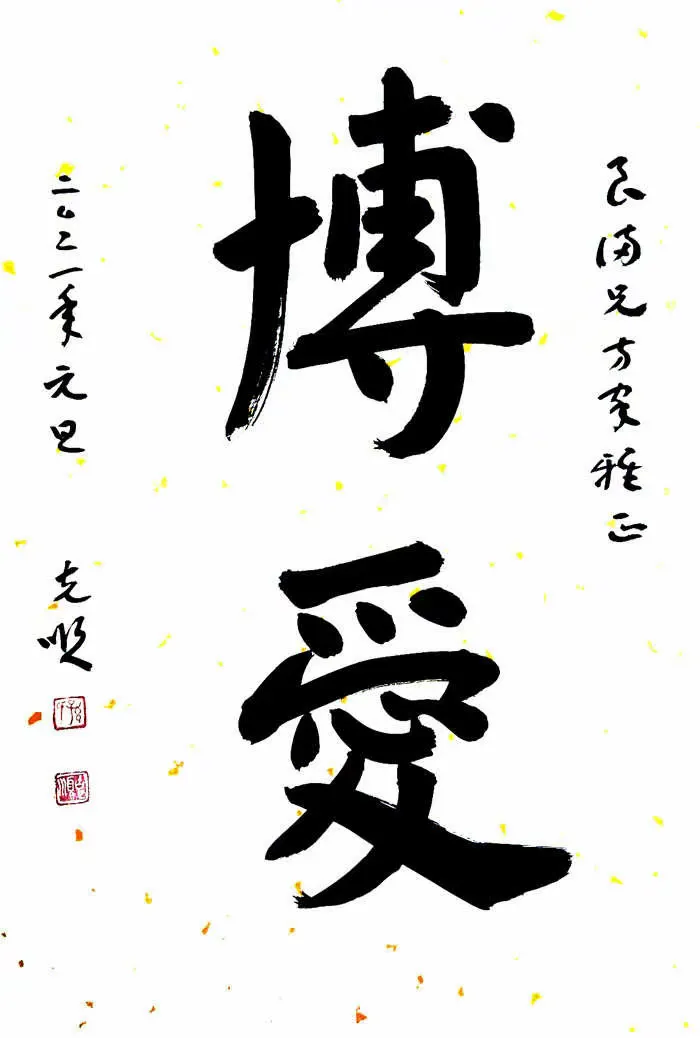 良兄方家雅正
博愛
二〇二一年元旦
克順